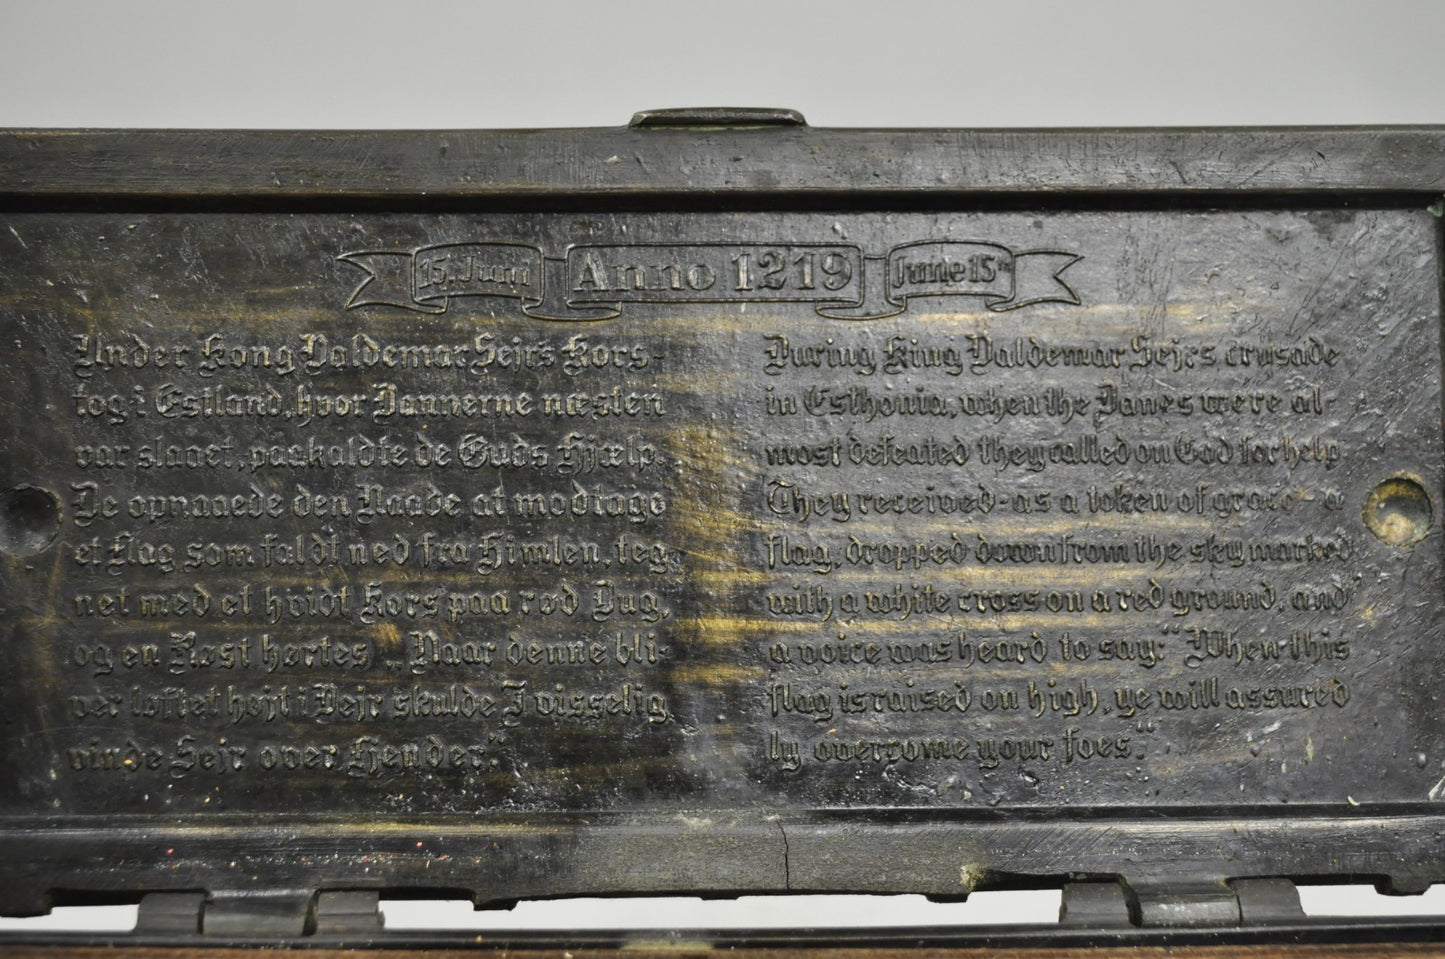 15. Juni Anno 1219 June 15th
Under Kong Valdemar Sejrs Kors-
tog i Estland, hvor Dannerne næsten
var slaaet, paakaldte de Guds Hjælp.
De opnaaede den Naade at modtage
et Flag, som faldt ned fra Himlen, teg-
net med et hvidt Kors paa rød Dug,
og en Røst hørtes „Naar denne bli-
ver løftet højt i Vejr skulde I visselig
vinde Sejr over Fjender."
During King Valdemar Sejrs crusade
in Esthonia, when the Danes were al-
most defeated they called on God for help.
They received-as a token of grace-a
flag, dropped down from the sky, marked
with a white cross on a red ground, and
a voice was heard to say: "When this
flag is raised on high, ye will assured
ly overcome your foes."